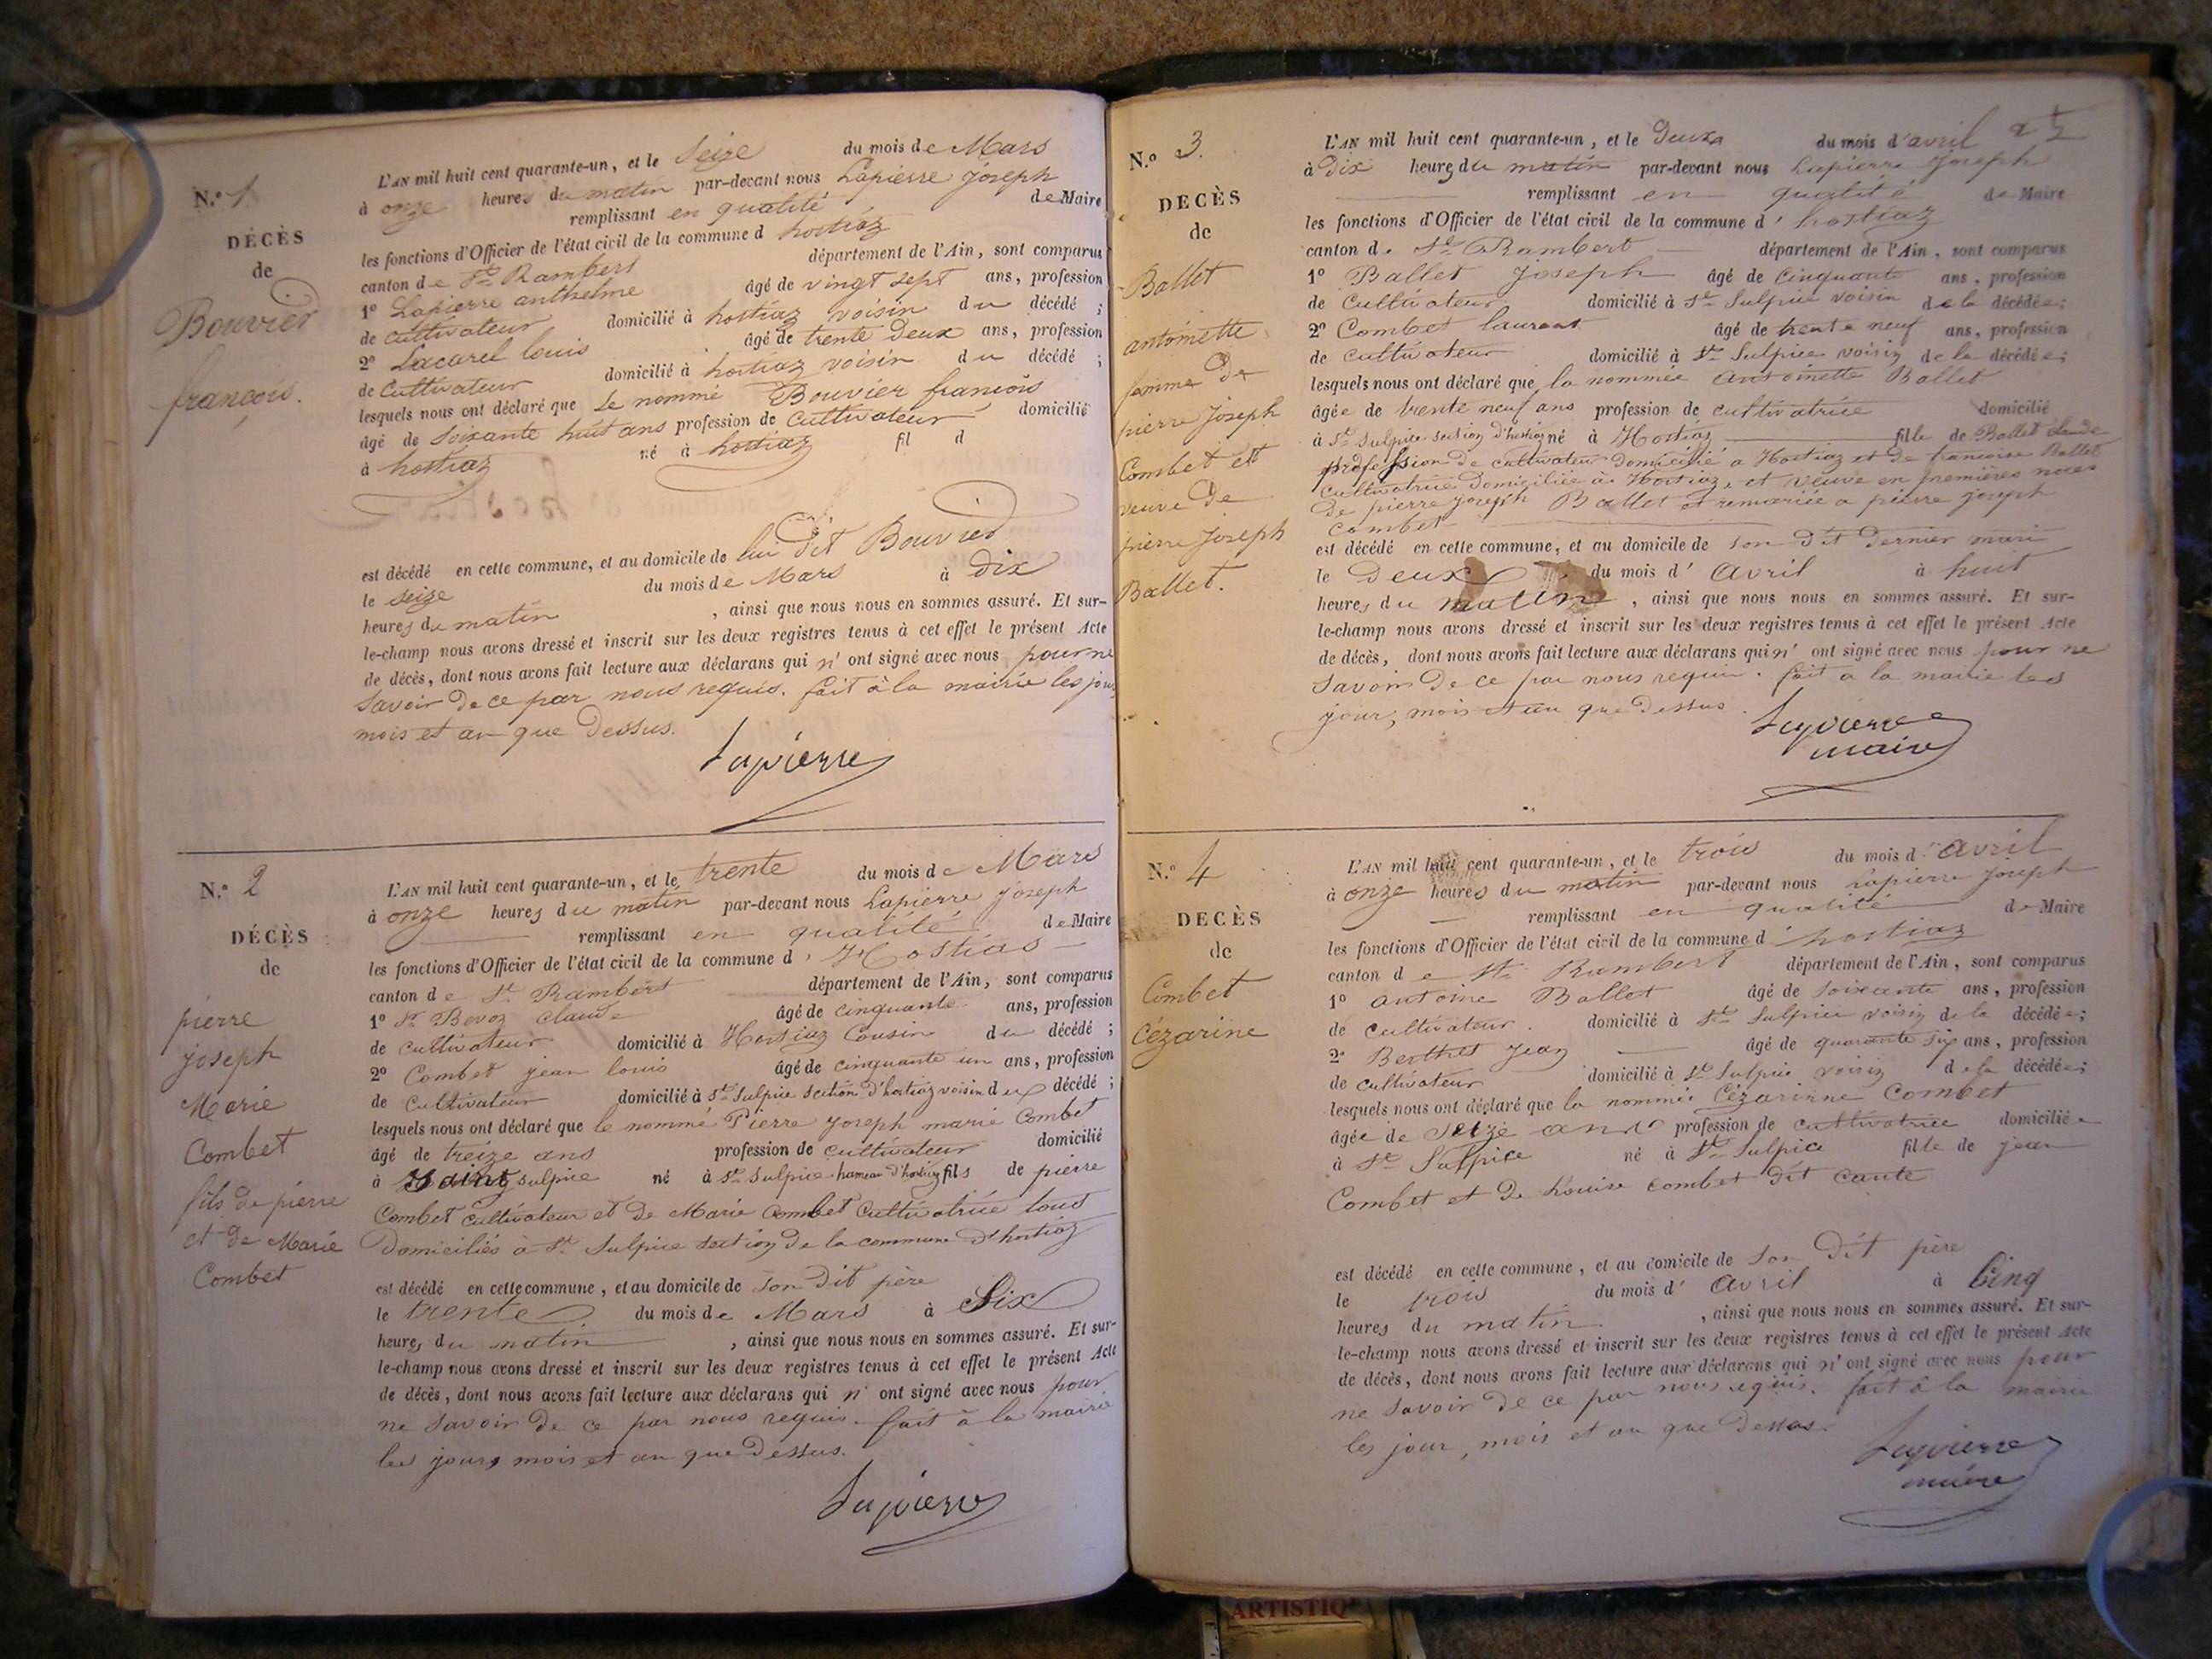 N.o 1
DÉCÈS
de
Bouvier
françois.
L'AN mil huit cent quarante-un, et le Seize du mois de Mars
à onze heures du matin par-devant nous Lapierre joseph
remplissant en qualité de Maire
les fonctions d'Officier de l'état civil de la commune d hostiaz
canton de St. Rambert département de l'Ain, sont comparus
1o Lapierre anthelme âgé de vingt sept ans, profession
de cultivateur domicilié à hostiaz voisin du décédé ;
2o Lacarel louis âgé de trente Deux ans, profession
de Cultivateur domicilié à hostiaz voisin du décédé ;
lesquels nous ont déclaré que Le nommé Bouvier francois
âgé de Soixante huit ans profession de Cultivateur domicilié
à hostiaz né à hostiaz fil d
est décédé en cette commune, et au domicile de lui dit Bouvier
le seize du mois de Mars à dix
heures du matin , ainsi que nous nous en sommes assuré. Et sur-
le-champ nous avons dressé et inscrit sur les deux registres tenus à cet effet le présent Acte
de décès, dont nous avons fait lecture aux déclarans qui n' ont signé avec nous pour ne
Savoir De ce par nous requis. fait à la mairie les jour
mois et an que Dessus.
Lapierre
N.o 2
DÉCÈS
de
pierre
joseph
Marie
Combet
fils de pierre
et de Marie
Combet
L'AN mil huit cent quarante-un, et le trente du mois de Mars
à onze heures du matin par-devant nous Lapierre joseph
remplissant en qualité de Maire
les fonctions d'Officier de l'état civil de la commune d' Hostias
canton de St. Rambert département de l'Ain, sont comparus
1o St Bevoz Claude âgé de cinquante ans, profession
de cultivateur domicilié à Hostiaz Cousin du décédé ;
2o Combet jean louis âgé de cinquante un ans, profession
de Cultivateur domicilié à St. Sulpice section d'hostiaz voisin du décédé ;
lesquels nous ont déclaré que le nommé Pierre joseph marie Combet
âgé de treize ans profession de cultivateur domicilié
à Saint sulpice né à St. Sulpice hameau d'hostiaz fils de pierre
Combet cultivateur et De Marie Combet Cultivatrice tous
Domiciliés à St. Sulpice section de la commune d'hostiaz
est décédé en cette commune, et au domicile de son dit père
le trente du mois de Mars à Six
heures du matin , ainsi que nous nous en sommes assuré. Et sur-
le-champ nous avons dressé et inscrit sur les deux registres tenus à cet effet le présent Acte
de décès, dont nous avons fait lecture aux déclarans qui n' ont signé avec nous pour
ne savoir De ce par nous requis. fait à la mairie
les jours mois et an que Dessus.
Lapierre
N.o 3.
DECÈS
de
Ballet
antoinette
femme De
pierre Joseph
Combet et
veuve De
pierre Joseph
Ballet.
L'AN mil huit cent quarante-un, et le Deux du mois d'avril
à Dix heures du matin par-devant nous Lapierre joseph
remplissant en qualité de Maire
les fonctions d'Officier de l'état civil de la commune d' hostiaz
canton de St. Rambert département de l'Ain, sont comparus
1o Ballet Joseph âgé de Cinquante ans, profession
de Cultivateur domicilié à St. Sulpice voisin de la décédée;
2o Combet laurent âgé de trente neuf ans, profession
de cultivateur domicilié à St. Sulpice voisin de la décédée;
lesquels nous ont déclaré que la nommée Antoinette Ballet
âgée de trente neuf ans profession de cultivatrice domicilié
à St. Sulpice section d'hostiaz né à Hostiaz fille de Ballet Claude
profession De cultivateur Domicilié a Hostiaz et De francoise Ballet
Cultivatrice Domiciliée à Hostiaz, et veuve en premières noces
De pierre joseph Ballet et remariée a pierre joseph
Combet
est décédé en cette commune, et au domicile de son Dit Dernier mari
le Deux du mois d' Avril à huit
heures du matin , ainsi que nous nous en sommes assuré. Et sur-
le-champ nous avons dressé et inscrit sur les deux registres tenus à cet effet le présent Acte
de décès, dont nous avons fait lecture aux déclarans qui n' ont signé avec nous pour ne
Savoir De ce par nous requis. fait a la mairie les
jour, mois et an que Dessus.
Lapierre
maire
N.o 4
DECÈS
de
Combet
Cézarine
L'AN mil huit cent quarante-un, et le trois du mois d' Avril
à onze heures du matin par-devant nous Lapierre joseph
remplissant en qualité de Maire
les fonctions d'Officier de l'état civil de la commune d' hostiaz
canton de St. Rambert département de l'Ain, sont comparus
1o antoine Ballet âgé de soixante ans, profession
de cultivateur. domicilié à St. Sulpice voisin de la décédée;
2o Berthet Jean âgé de quarante six ans, profession
de cultivateur domicilié à St. Sulpice voisin de la décédée;
lesquels nous ont déclaré que la nommée Cézarinne Combet
âgée de Seize ans profession de cultivatrice domiciliée
à St. Sulpice né à St. Sulpice fille de jean
Combet et De Louise Combet dit caute
est décédé en cette commune, et au domicile de son Dit père
le trois du mois d' Avril à Cinq
heures du matin , ainsi que nous nous en sommes assuré. Et sur-
le-champ nous avons dressé et inscrit sur les deux registres tenus à cet effet le présent Acte
de décès, dont nous avons fait lecture aux déclarans qui n' ont signé avec nous pour
ne savoir De ce par nous requis. fait à la mairie
les jour, mois et an que Dessus.
Lapierre
maire
ARTISTIQ